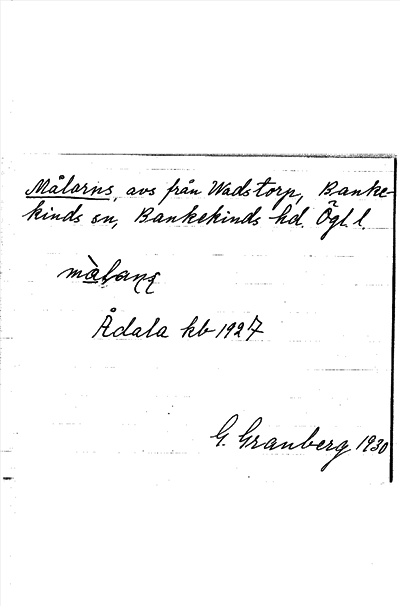 Målarns, avs från Wadstorp, Banke-
kinds sn, Bankekinds hd. Ögl. l.
Ådala kb 1927
G. Granberg 1930